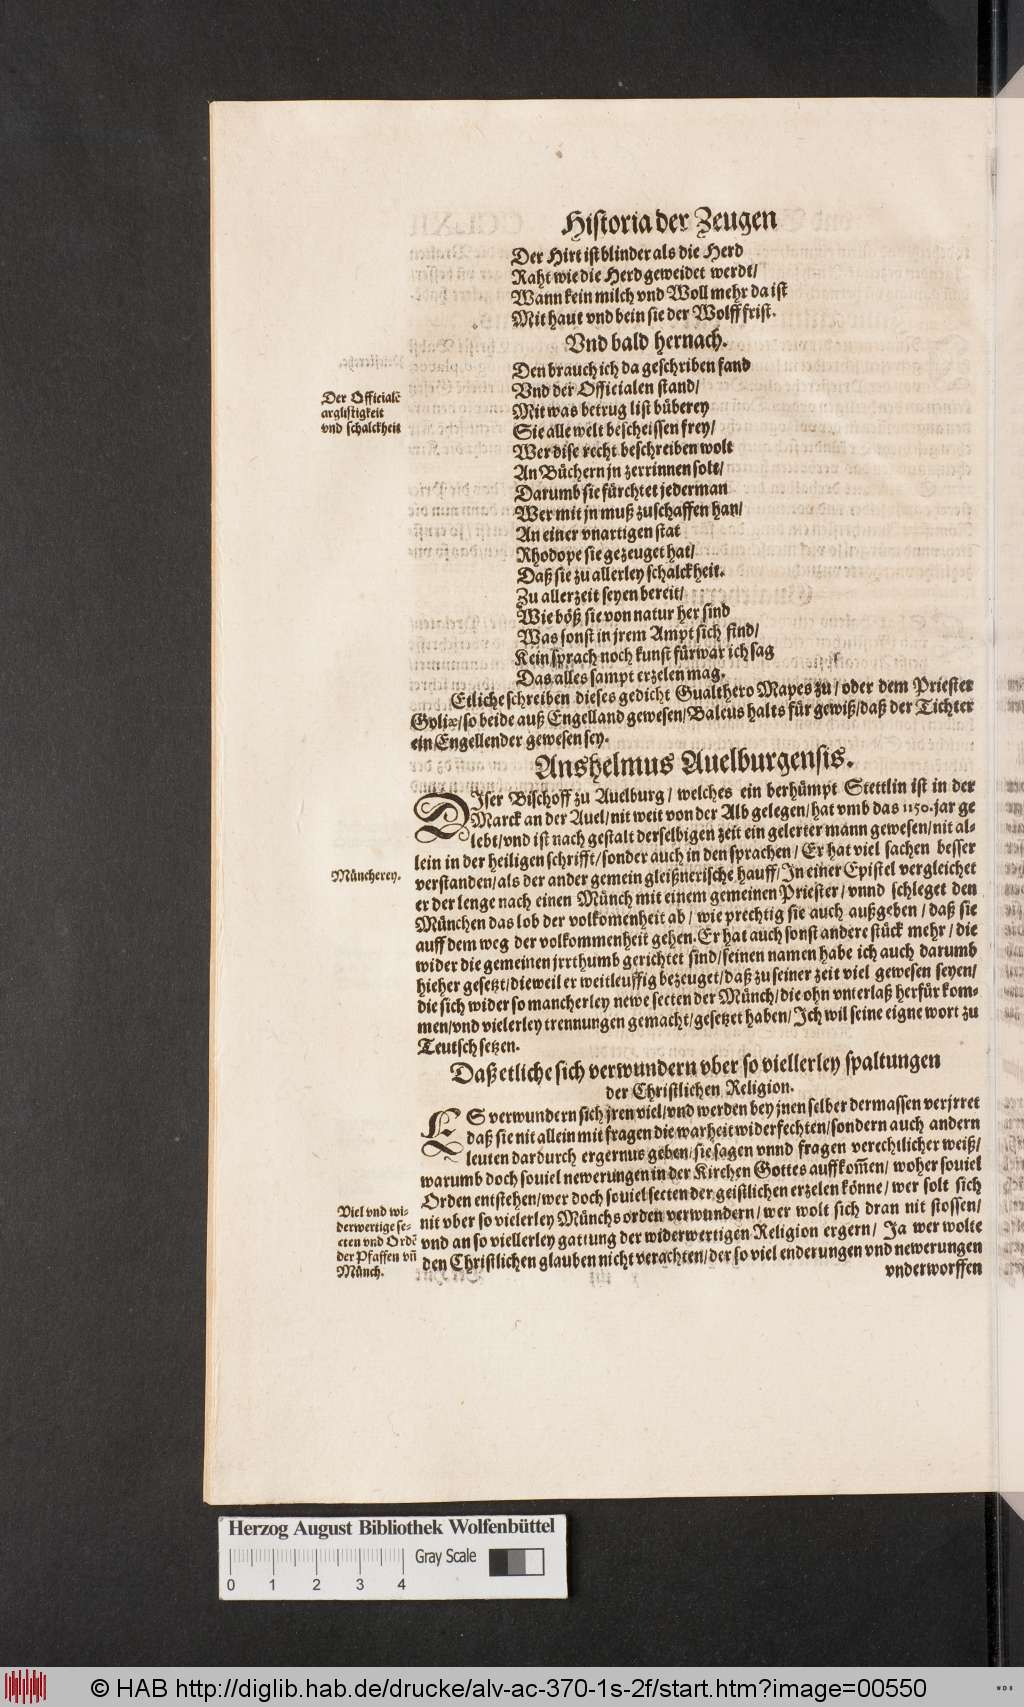 Historia der Zeugen
Der Hirt ist blinder als die Herd
Raht wie die Herd geweidet werdt/
Wann kein milch vnd Woll mehr da ist
Mit haut vnd bein sie der Wolff frist.
Vnd bald hernach.
Den brauch ich da geschriben fand
Vnd der Officialen stand/
Der Officialẽ
argliſtigkeit
vnd schalckheit
Mit was betrug list büberey
Sie alle welt bescheissen frey/
Wer dise recht beschreiben wolt
An Büchern jn zerrinnen solt/
Darumb sie fürchtet jederman
Wer mit jn muß zuschaffen han/
An einer vnartigen stat
Rhodope sie gezeuget hat/
Daß sie zu allerley schalckheit.
Zu allerzeit seyen bereit/
Wie böß sie von natur her sind
Was sonst in jrem Ampt sich find/
Kein sprach noch kunst fürwar ich sag
Das alles sampt erzelen mag.
Etliche schreiben dieses gedicht Gualthero Mapes zu/ oder dem Priester
Goliæ/ so beide auß Engelland gewesen/ Baleus halts für gewiß/ daß der Tichter
ein Engellender gewesen sey.
Anshelmus Auelburgensis.
DIser Bischoff zu Auelburg/ welches ein berhümpt Stettlin ist in der
Marck an der Auel/ nit weit von der Alb gelegen/ hat vmb das 1150. jar ge
lebt/ vnd ist nach gestalt derselbigen zeit ein gelerter mann gewesen/ nit al-
lein in der heiligen schrifft/ sonder auch in den sprachen/ Er hat viel sachen besser
Müncherey.
verstanden/ als der ander gemein gleißnerische hauff/ In einer Epistel vergleichet
er der lenge nach einen Münch mit einem gemeinen Priester/ vnnd schleget den
München das lob der volkomenheit ab/ wie prechtig sie auch außgeben/ daß sie
auff dem weg der volkommenheit gehen. Er hat auch sonst andere stück mehr/ die
wider die gemeinen jrrthumb gerichtet sind/ seinen namen habe ich auch darumb
hieher gesetzt/ dieweil er weitleuffig bezeuget/ daß zu seiner zeit viel gewesen seyen/
die sich wider so mancherley newe secten der Münch/ die ohn vnterlaß herfür kom-
men/ vnd vielerley trennungen gemacht/ gesetzet haben/ Ich wil seine eigne wort zu
Teutsch setzen.
Daß etliche sich verwundern vber so viellerley spaltungen
der Christlichen Religion.
ES verwundern sich jren viel/ vnd werden bey jnen selber dermassen verjrret
daß sie nit allein mit fragen die warheit widerfechten/ sondern auch andern
leuten dardurch ergernus geben/ sie sagen vnnd fragen verechtlicher weiß/
warumb doch souiel newerungen in der Kirchen Gottes auffkom̃en/ woher souiel
Orden entstehen/ wer doch souiel secten der geistlichen erzelen könne/ wer solt sich
nit vber so vielerley Münchsorden verwundern/ wer wolt sich dran nit stossen/
vnd an so viellerley gattung der widerwertigen Religion ergern/ Ja wer wolte
den Christlichen glauben nicht verachten/ der so viel enderungen vnd newerungen
Viel vnd wi-
derwertige se-
cten vnd Ordẽ
der Pfaffen vñ
Münch.
vnderworffen
Herzog August Bibliothek Wolfenbüttel
Gray Scale
0 1 2 3 4
© HAB http://diglib.hab.de/drucke/alv-ac-370-1s-2f/start.htm?image=00550